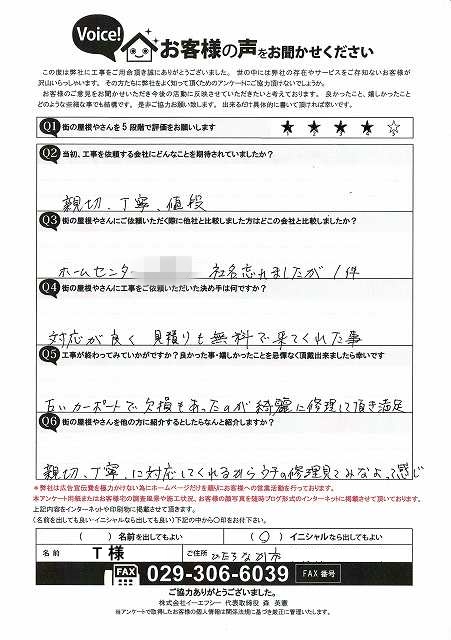 Voice!
お客様の声をお聞かせください
この度は弊社に工事をご用命頂き誠にありがとうございました。世の中には弊社の存在やサービスをご存知ないお客様が
沢山いらっしゃいます。その方たちに弊社をよく知って頂くためのアンケートにご協力頂けないでしょうか。
お客様のご意見をお聞かせいただき今後の活動に反映させていただきたいと考えております。良かったこと、嬉しかったこと
どのような些細な事でも結構です。是非ご協力お願い致します。出来るだけ具体的に書いて頂ければ幸いです。
Q1 街の屋根やさんを5段階で評価をお願いします ★ ★ ★ ★ ☆
Q2 当初、工事を依頼する会社にどんなことを期待されていましたか?
親切、丁寧、値段
Q3 街の屋根やさんにご依頼いただく際に他社と比較しました方はどこの会社と比較しましたか?
ホームセンター 社名忘れましたが1件
Q4 街の屋根やさんに工事をご依頼いただいた決め手は何ですか?
対応が良く 見積りも無料で来てくれた事
Q5 工事が終わってみていかがですか?良かった事・嬉しかったことを忌憚なく頂戴出来ましたら幸いです
古いカーポートで欠損もあったのが綺麗に修理して頂き満足
Q6 街の屋根やさんを他の方に紹介するとしたらなんと紹介しますか?
親切、丁寧、に対応してくれるからウチの修理見てみなよって感じ
*弊社は広告宣伝費を極力かけない為にホームページだけを頼りにお客様への営業活動を行っております。
本アンケート用紙またはお客様宅の調査風景や施工状況、お客様の顔写真を随時ブログ形式のインターネットに掲載させて頂いております。
上記内容をインターネットや印刷物に掲載させて頂きます。
(名前を出しても良い・イニシャルなら出しても良い)下記の中から〇印をお付け下さい。
( )名前を出してもよい (○)イニシャルなら出してもよい
名前 T様 ご住所 ひたちなか市
FAX 029-306-6039 FAX番号
ご協力ありがとうございました。
株式会社イーエフシー 代表取締役 森 英憲
※アンケートで取得したお客様の個人情報は関係法規に基づき厳正に管理いたします。